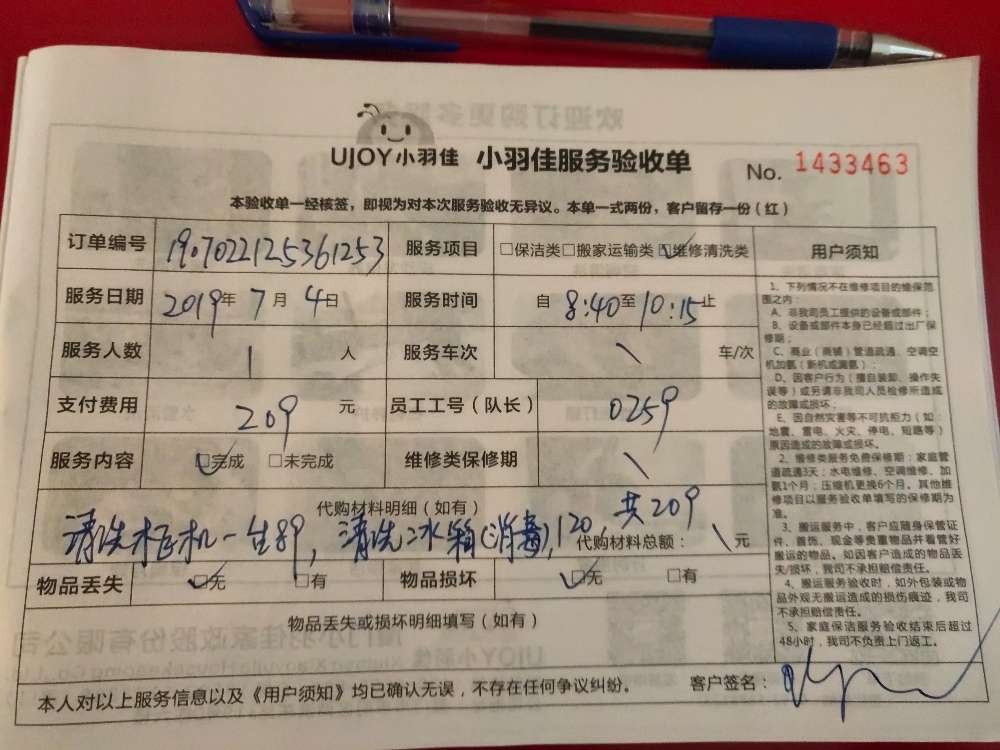 UJOY小羽佳 小羽佳服务验收单 No. 1433463
本验收单一经核签，即视为对本次服务验收无异议。本单一式两份，客户留存一份（红）
订单编号 190702212536 1253 服务项目 □保洁类□搬家运输类☑维修清洗类
服务日期 2019年7月4日 服务时间 自8:40至10:15止
服务人数 1人 服务车次 \ 车/次
支付费用 209元 员工工号（队长） 0259
服务内容 ☑完成 □未完成 维修类保修期 \
代购材料明细（如有）
清洗柜机一台89，清洗冰箱(消毒)120，共209
代购材料总额： \元
物品丢失 ☑无 □有 物品损坏 ☑无 □有
物品丢失或损坏明细填写（如有）
本人对以上服务信息以及《用户须知》均已确认无误，不存在任何争议纠纷。 客户签名：
用户须知
1、下列情况不在维修项目的维保范
围之内：
A、非我司员工提供的设备或部件；
B、设备或部件本身已经超过出厂保
修期；
C、商业（商铺）管道疏通、空调空
机加氨（新机或漏氨）；
D、因客户行为（擅自装卸、操作失
误等）或另请非我司人员检修所造成
的故障或损坏；
E、因自然灾害等不可抗拒力（如：
地震、雷电、火灾、停电、短路等）
原因造成的故障或损坏。
2、维修类服务免费保修期：家庭管
道疏通3天；水电维修、空调维修、加
氨1个月；压缩机更换6个月。其他维
修项目以服务验收单填写的保修期为
准。
3、搬运服务中，客户应随身保管证
件、首饰、现金等贵重物品并看管好
搬运的物品。如因客户造成的物品丢
失/损坏，我司不承担赔偿责任。
4、搬运服务验收时，如外包装或物
品外观无搬运造成的损伤痕迹，我司
不承担赔偿责任。
5、家庭保洁服务验收结束后超过
48小时，我司不负责上门返工。